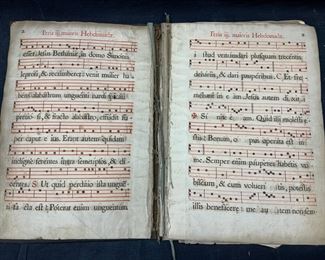 Feria iij. maioris Hebdomadæ.
esset Jesus Bethaniæ, in domo Simonis
leprosi, & recumberet: venit mulier ha
bens alabastrum unguenti nardi spica
pretio si, & fracto alabastro, effudit su
per caput e ius. Erant autem quidam
indigne ferentes intra semetipsos, & di
centes: S Ut quid perditio ista unguen
ti facta est? Poterat enim unguentum
Feria iij. maioris Hebdomadæ.
istud venundari plusquam trecentis
denariis, & dari pauperibus. C Et fre
in eam. Jesus autem dixit:
Quid illi molesti e
stis? Bonum opus operata est in
me. Semper enim pauperes habetis vo
biscum, & cum volueritis, potestis
illis benefacere: me autem non sem